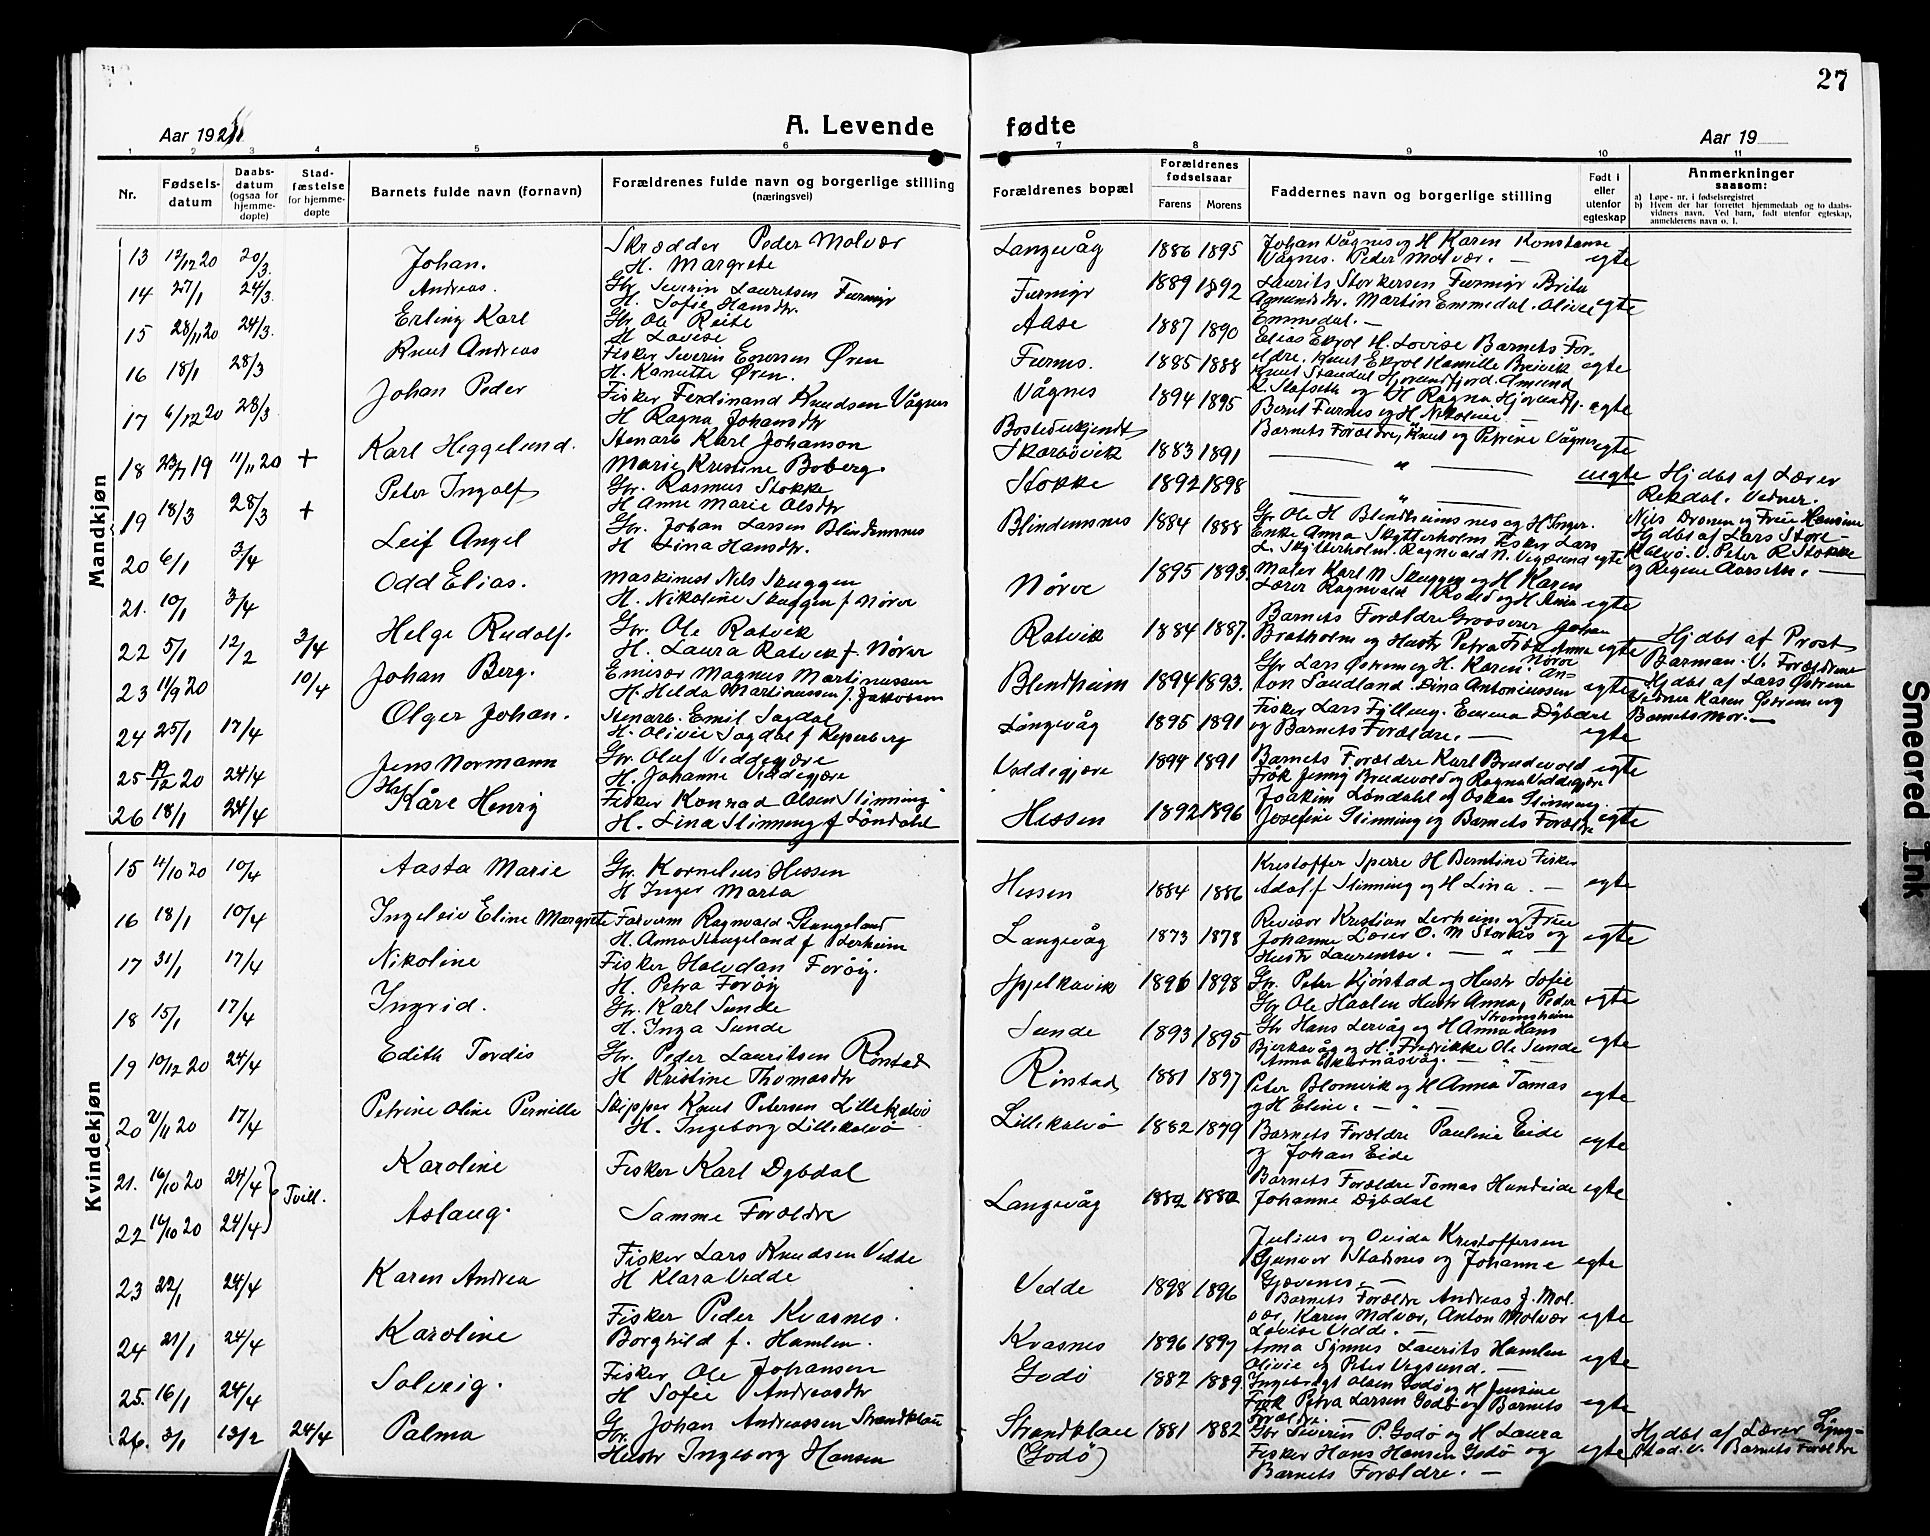 27
Aar 1921
A. Levende
fødte
Aar 19
1 2 3 4 5 6 7 8 9 10 11
Nr.
Fødsels-
datum
Daabs-
datum
(ogsaa for
hjemme-
døpte)
Stad-
fæstelse
for hjemme-
døpte
Barnets fulde navn (fornavn)
Forældrenes fulde navn og borgerlige stilling
(næringsvei)
Forældrenes bopæl
Forældrenes
fødselsaar
Farens Morens
Faddernes navn og borgerlige stilling
Født i
eller
utenfor
egteskap
Anmerkninger
saasom:
a) Løpe-nr. i fødselsregistret
b) Hvem der har forrettet hjemmedaab og to daabs-
vidners navn. Ved barn, født utenfor egteskap,
anmelderens navn o. l.
Mandkjøn
13 12/12 20 20/3 Johan. Skrædder Peder Molvær
H. Margrete
Langevåg 1886 1895 Johan Vågnes og H Karen Konstanse
Vågnes. Peder Molvær. — egte
14 27/1 24/3 Andreas. Gbr Severin Lauritsen Furmyr
H. Sofie Hansdtr.
Furmyr 1889 1892 Laurits Storkersen Furmyr Brita
Amundsdtr. Martin Emmedal. Olive egte
Emmedal. —
15 28/11 20 24/3 Erling Karl Gbr Ole Reite
H Lovise
Aase 1887 1890 Elias Ekrol H. Lovise Barnets For-
ældre. Knut Ekrol Kamille Breivik egte
16 18/1 28/3 Knut Andreas Fisker Severin Enersen Øren
H. Kanutte Øren.
Furnes. 1885 1888 Knut Standal Hjørundfjord. Amund
K. Slafseth og H Ragna Hjørundfj. egte
Bernt Furnes og H. Nikoline
17 6/12 20 28/3 Johan Peder Fisker Ferdinand Knudsen Vågnes
H Ragna Johansdtr
Vågnes 1894 1895 Barnets Forældre, Knut og Petrine Vågnes egte
18 23/7 19 11/11 20 + Karl Heggelund. Stenarb Karl Johanson
Marie Kristine Boberg.
Bosted ukjendt
Skarbøvik 1883 1891 — " — uegte Hj dbt af Lærer
Rekdal. Vedner.
Nils Dronen og Frue Hansine
19 18/3 28/3 + Peter Ingolf Gbr. Rasmus Stokke
H Anne Marie Olsdtr
Stokke 1892 1898 — " —
Hj dbt af Lars Store-
kalvø. V. Peter R Stokke
og Regine Aarseth. —
20 6/1 3/4 Leif Angel Gbr. Johan Larsen Blindemnes
H Lina Hansdtr.
Blindemnes 1884 1888 Gbr Ole H Blindheimsnes og H Inger.
Enke Anna Skytterholm Fisker Lars
L. Skytterholm. Ragnvald N. Vegsund egte
21. 10/1 3/4 Odd Elias. Maskinist Nils Skuggen
H. Nikoline Skuggen f Nørve
Nørve 1895 1893. Maler Karl N Skuggen og H Karen
Lærer Ragnvald Roald og H Anna egte
22 5/1 12/2 3/4 Helge Rudolf. Gbr. Ole Ratvik
H. Laura Ratvik f. Nørve
Ratvik 1884 1887. Barnets Forældre Grosserer Johan
Bratholm og Hustr Petra Frøk Anna egte
Nørve
Hj dbt af Prost
Barman. V. Forældrene
23 11/9 20 10/4 Johan Berg. Emisær Magnus Martinussen
H. Hilda Martinussen f. Jakobsen
Blindheim 1894 1893. Gbr Lars Østrem og H. Karen. An-
ton Sandland. Dina Antoniussen egte
Hj dbt af Lars Østrem
Vedner Karen Østrem og
Barnets Mor. —
24 25/1 17/4 Olger Johan. Stenarb. Emil Sagdal
H. Olivie Sagdal f Reperberg
Langevåg 1895 1891 Fisker Lars Fylling. Emma Dybdal
og Barnets Forældre. — egte
25 19/12 20 24/4 Jens Normann Gbr Oluf Veddegjære
H. Johanne Veddegjære
Veddegjære 1894 1891 Barnets Forældre Karl Brudevold egte
Frøk Jenny Brudevold og Ragna Veddegjære
26 18/1 24/4 Kåre Henry Fisker Konrad Olsen Slinning
H. Lina Slinning f Løndahl
Hessen 1892 1896 Joakim Løndahl og Oskar Slinning.
Josefine Slinning og Barnets Forældre egte
Kvindekjøn
15 4/10 20 10/4 Aasta Marie Gbr. Kornelius Hessen
H Inger Marta
Hessen 1884 1886 Kristoffer Sperre H Berntine Fisker
Adolf Slinning og H Lina. — egte
16 18/1 10/4 Ingeleiv Eline Margrete Farverm Ragnvald Stangeland
H. Anna Stangeland f Lerheim
Langevåg 1873 1878 Revisor Kristian Lerheim og Frue
Johanne Lærer O. M Storkås og egte
Hustr Laurentse. — " —
17 31/1 17/4 Nikoline Fisker Halvdan Forøy.
H. Petra Forøy
Spjelkavik 1896 1898 Gbr. Peter Kjørstad og Hustr Sofie
Gbr Ole Haalen Hustr Anna, Peder egte
Strømsheim
18 15/1 17/4 Ingrid. Gbr. Karl Sunde
H. Inga Sunde
Sunde 1893 1895 Gbr Hans Lervåg og H Anna Hans
Bjerkavåg og H. Fredrikke Ole Sunde egte
Anna Ekernåsvåg. — " —
19 10/12 20 24/4 Edith Tordis Gbr. Peder Lauritsen Rørstad
H Kristine Thomasdtr
Rørstad 1881 1897 Peter Blomvik og H Anna Tomas
og H Eline. — " — egte
20 2/11 20 17/4 Petrine Oline Pernille Skipper Knut Petersen Lillekalvø
H. Ingeborg Lillekalvø
Lillekalvø 1882 1879 Barnets Forældre Pauline Eide
og Johan Eide egte
21. 16/10 20 24/4 Tvill. Karoline Fisker Karl Dybdal
Langevåg 1882 1880 Barnets Forældre Tomas Hundeide egte
Johanne Dybdal
22 16/10 20 24/4 Aslaug. Samme Forældre
Julius og Ovida Kristoffersen
Gunvor Stadsnes og Johanne egte
Gjævenes. —
23 22/1 24/4 Karen Andrea Fisker Lars Knudsen Vedde
H Klara Vedde
Vedde 1898 1896 Barnets Forældre Andreas J. Mol-
vær, Karen Molvær, Anton Molvær egte
Lovise Vedde. —
24 21/1 24/4 Karoline Fisker Peder Kvasnes.
Borghild f. Hamlen.
Kvasnes 1896 1897 Anna Synnes Laurits Hamlen
Olivie og Peter Vegsund. — egte
25. 16/1 24/4 Solveig. Fisker Ole Johansen
H Sofie Andreasdtr
Godø 1882 1889. Ingebrigt Olsen Godø og H Jensine
Frøk Petra Larsen Godø og Barnets egte
Forældre. —
26. 3/1 13/2 24/4 Palma Gbr. Johan Andreassen Strandklau
Hustr Ingeborg Hansen
Strandklau
(Godø) 1881 1882 Gbr Severin P. Godø og H Laura
Fisker Hans Hansen Godø og egte
Barnets Forældre. —
Hj dbt af Lærer Lyng-
stad. V. Barnets Forældre
Smeared Ink